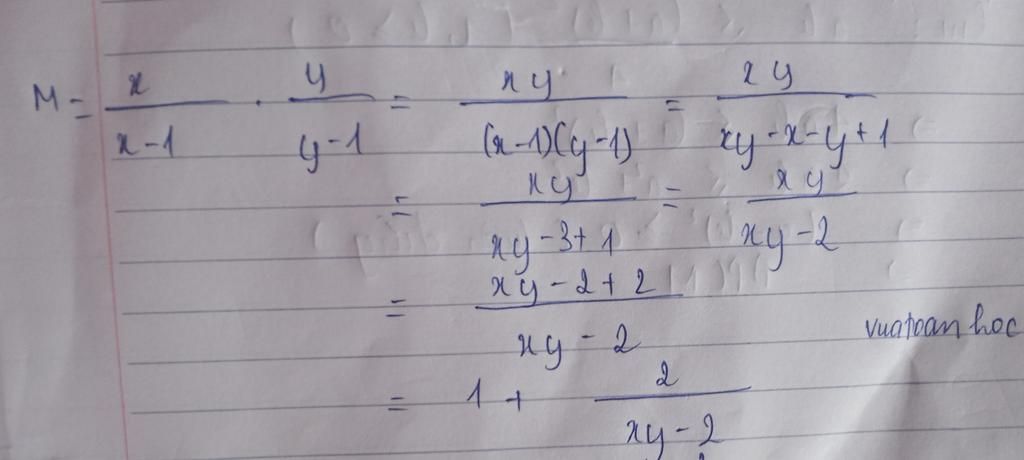 M = x/(x-1) . y/(y-1) = xy/((x-1)(y-1)) = xy/(xy-x-y+1)
= xy/(xy-3+1) = xy/(xy-2)
= (xy-2+2)/(xy-2)
vuatoanhoc
= 1 + 2/(xy-2)